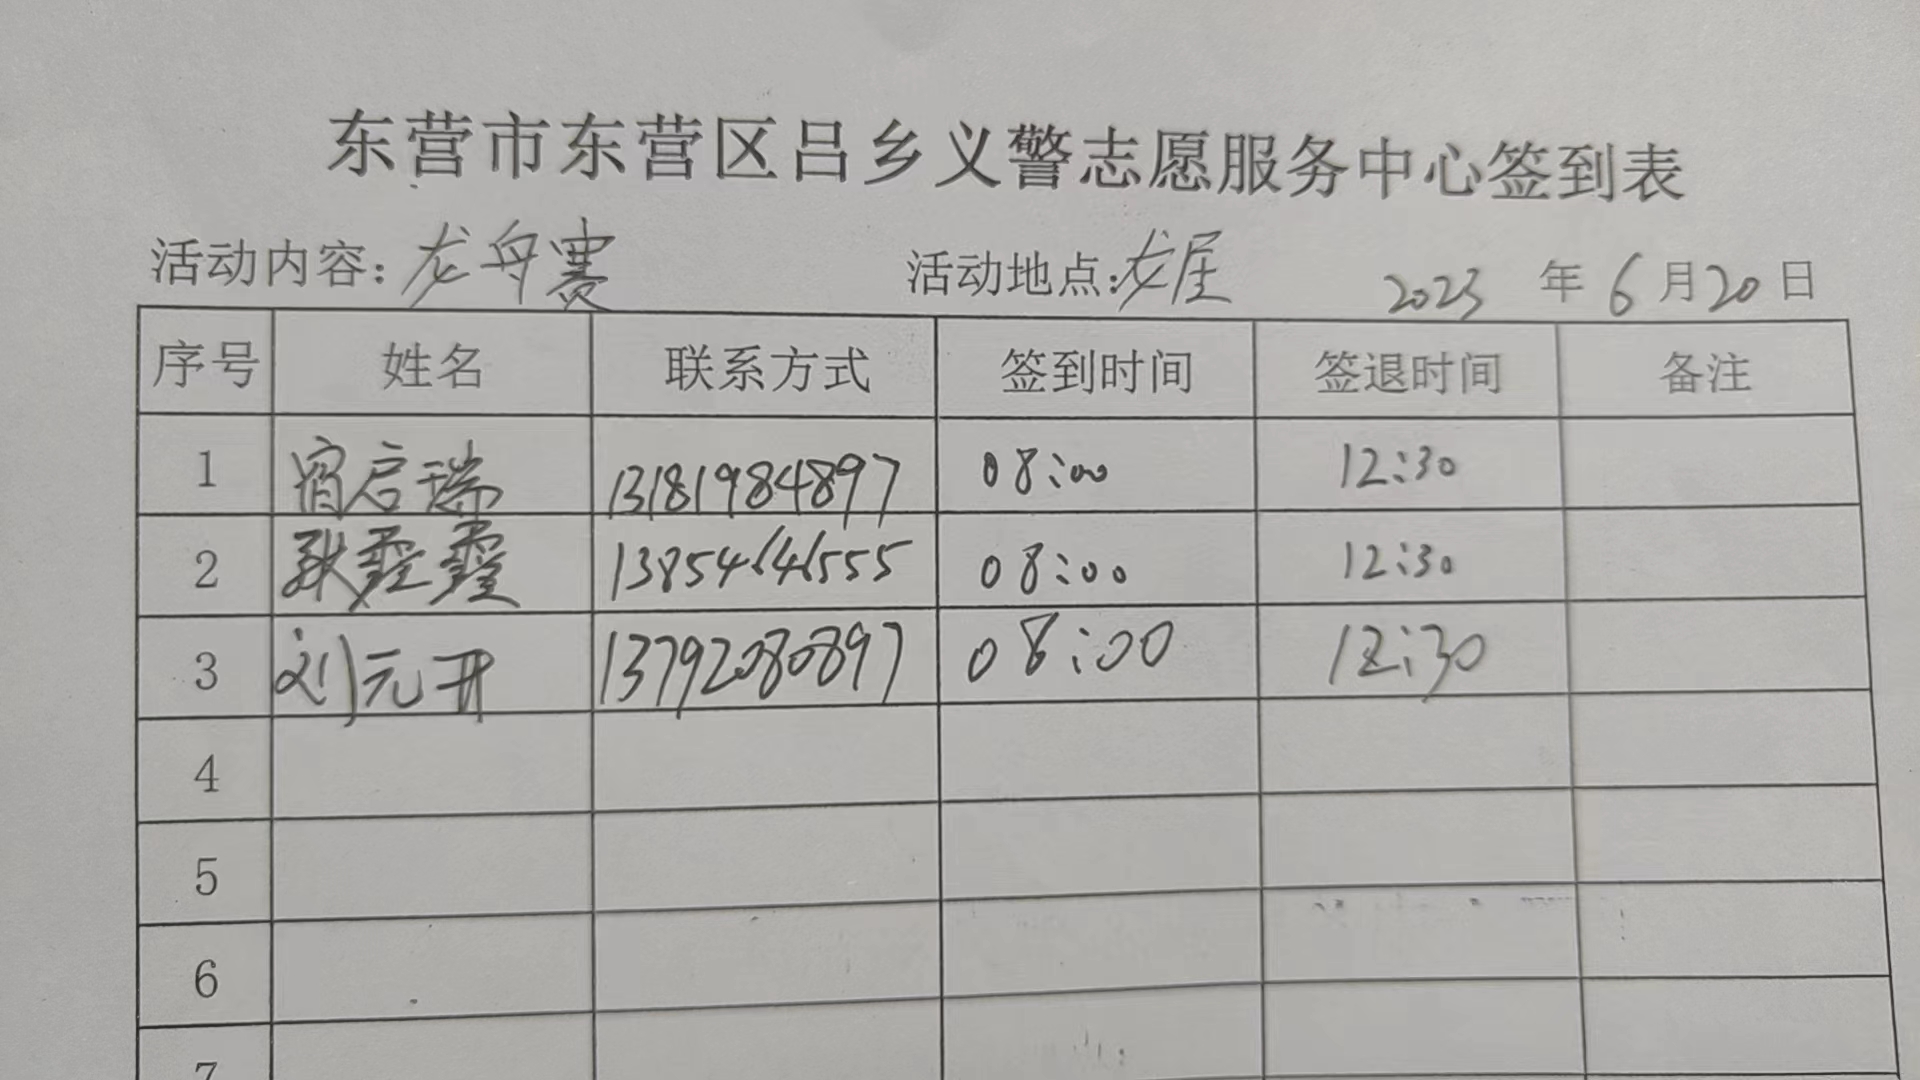 东营市东营区吕乡义警志愿服务中心签到表
活动内容：龙舟赛 活动地点：龙居 2023 年 6 月 20 日
序号 姓名 联系方式 签到时间 签退时间 备注
1 宿启瑞 13181984897 08:00 12:30
2 13854641555 08:00 12:30
3 刘元开 13792080897 08:00 12:30
4
5
6
7